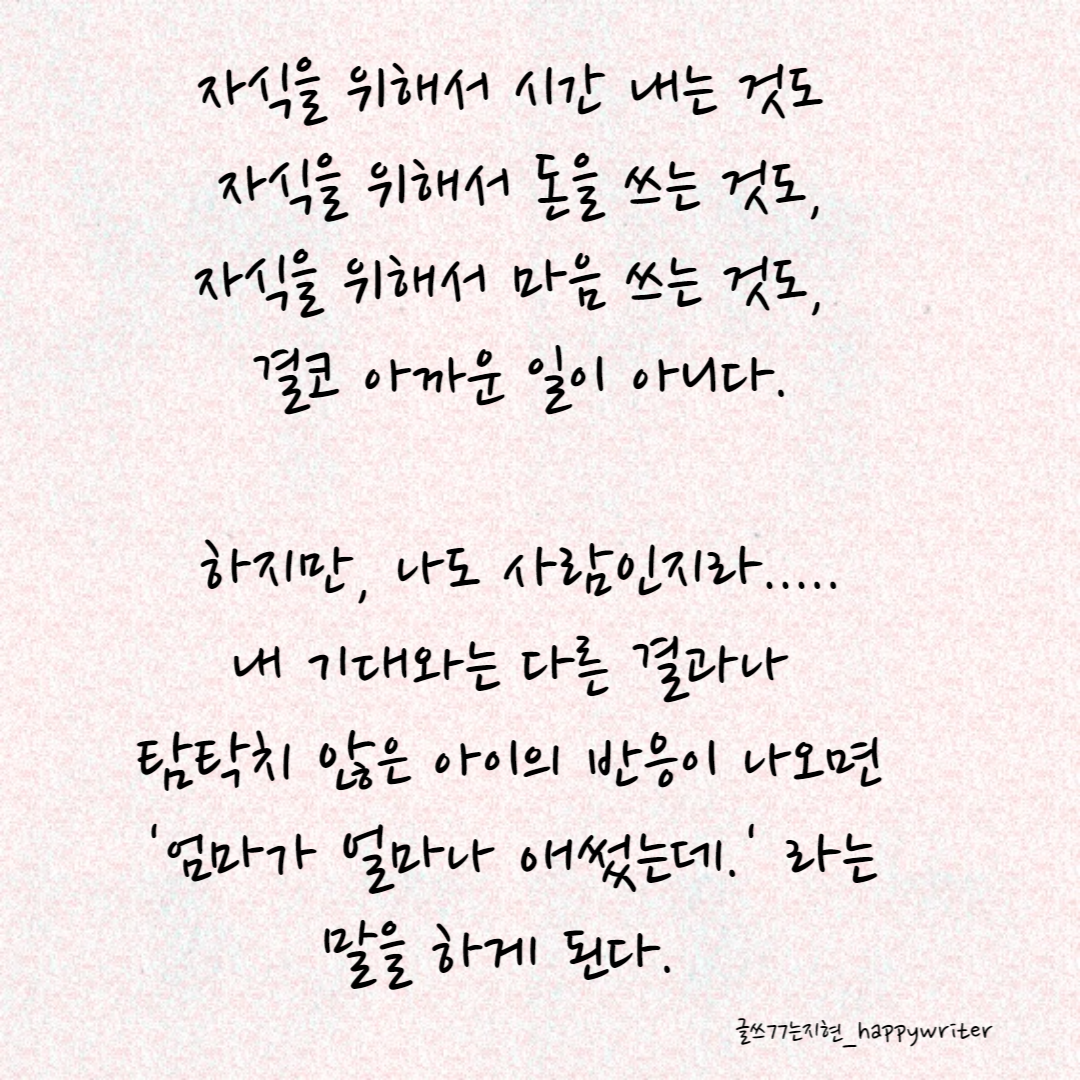 자식을 위해서 시간 내는 것도
자식을 위해서 돈을 쓰는 것도,
자식을 위해서 마음 쓰는 것도,
결코 아까운 일이 아니다.
하지만, 나도 사람인지라.....
내 기대와는 다른 결과나
탐탁치 않은 아이의 반응이 나오면
'엄마가 얼마나 애썼는데.' 라는
말을 하게 된다.
글쓰77는지현_happywriter